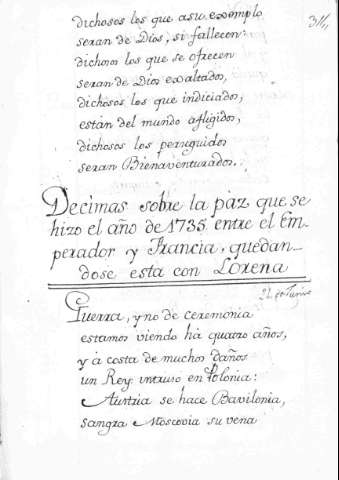 dichosos los que a su exemplo
311,
seran de Dios, si fallecen:
dichosos los que se ofrecen
seran de Dios exaltados,
dichosos los que indiciados,
están del mundo afligidos,
dichosos los perseguidos
seran Bienaventurados.
Decimas sobre la paz que se
hizo el año de 1735 entre el Em-
perador y Francia, quedan-
dose esta con Lorena
Guerra, y no de ceremonia
estamos viendo há quatro años,
y á costa de muchos daños
un Rey intruso en Polonia:
Austria se hace Bavilonia,
sangra Moscovia su vena